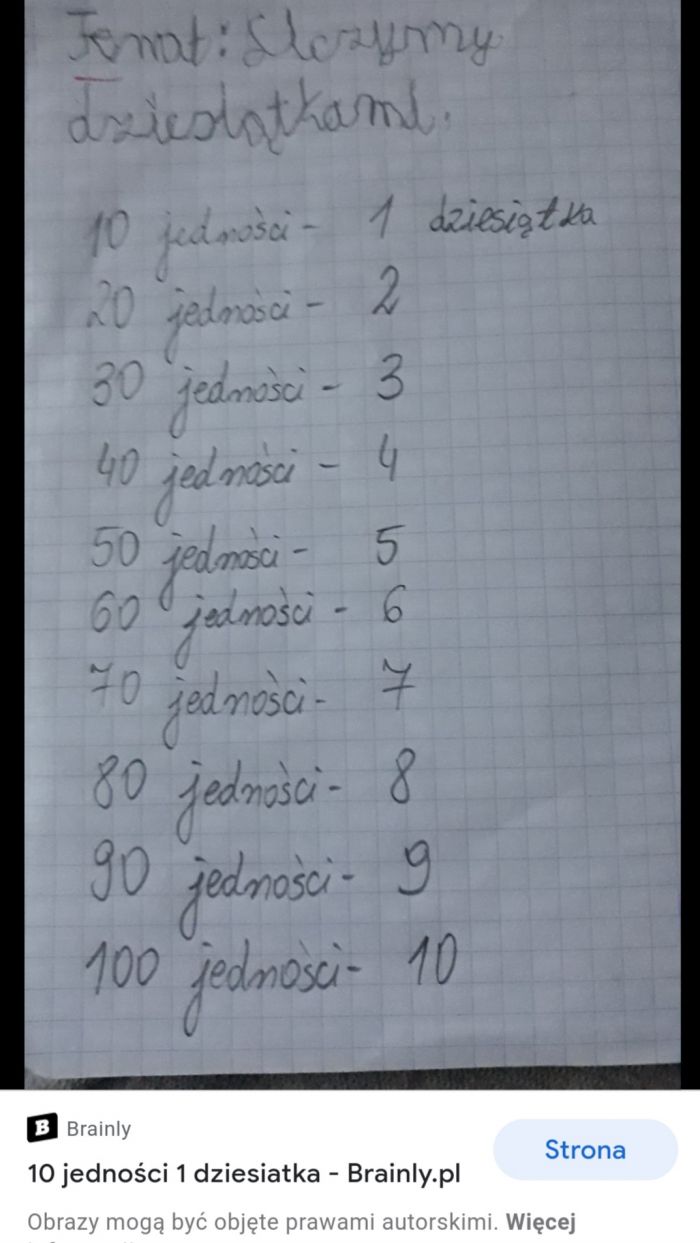 Temat: Liczymy
dziesiątkami.
10 jedności - 1 dziesiątka
20 jedności - 2
30 jedności - 3
40 jedności - 4
50 jedności - 5
60 jedności - 6
70 jedności - 7
80 jedności - 8
90 jedności - 9
100 jedności - 10
B Brainly
Strona
10 jedności 1 dziesiatka - Brainly.pl
Obrazy mogą być objęte prawami autorskimi. Więcej